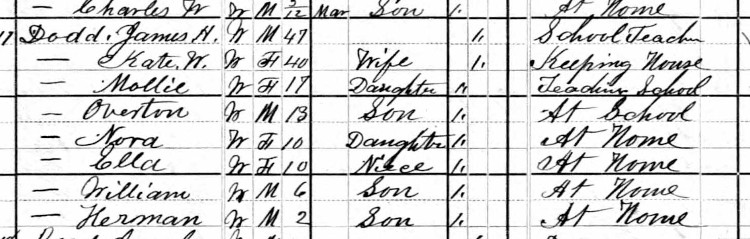 — Charles W W M 3/12 Mar Son 1. At Home
17 Dodd, James H. W M 47 1. School Teacher
— Kate. W. W F 40 Wife 1. Keeping House
— Mollie W F 17 Daughter 1. Teaching School
— Overton W M 13 Son 1. At School
— Nora W F 10 Daughter 1. At Home
— Ella W F 10 Niece 1. At Home
— William W M 6 Son 1. At Home
— Herman W M 2 Son 1. At Home